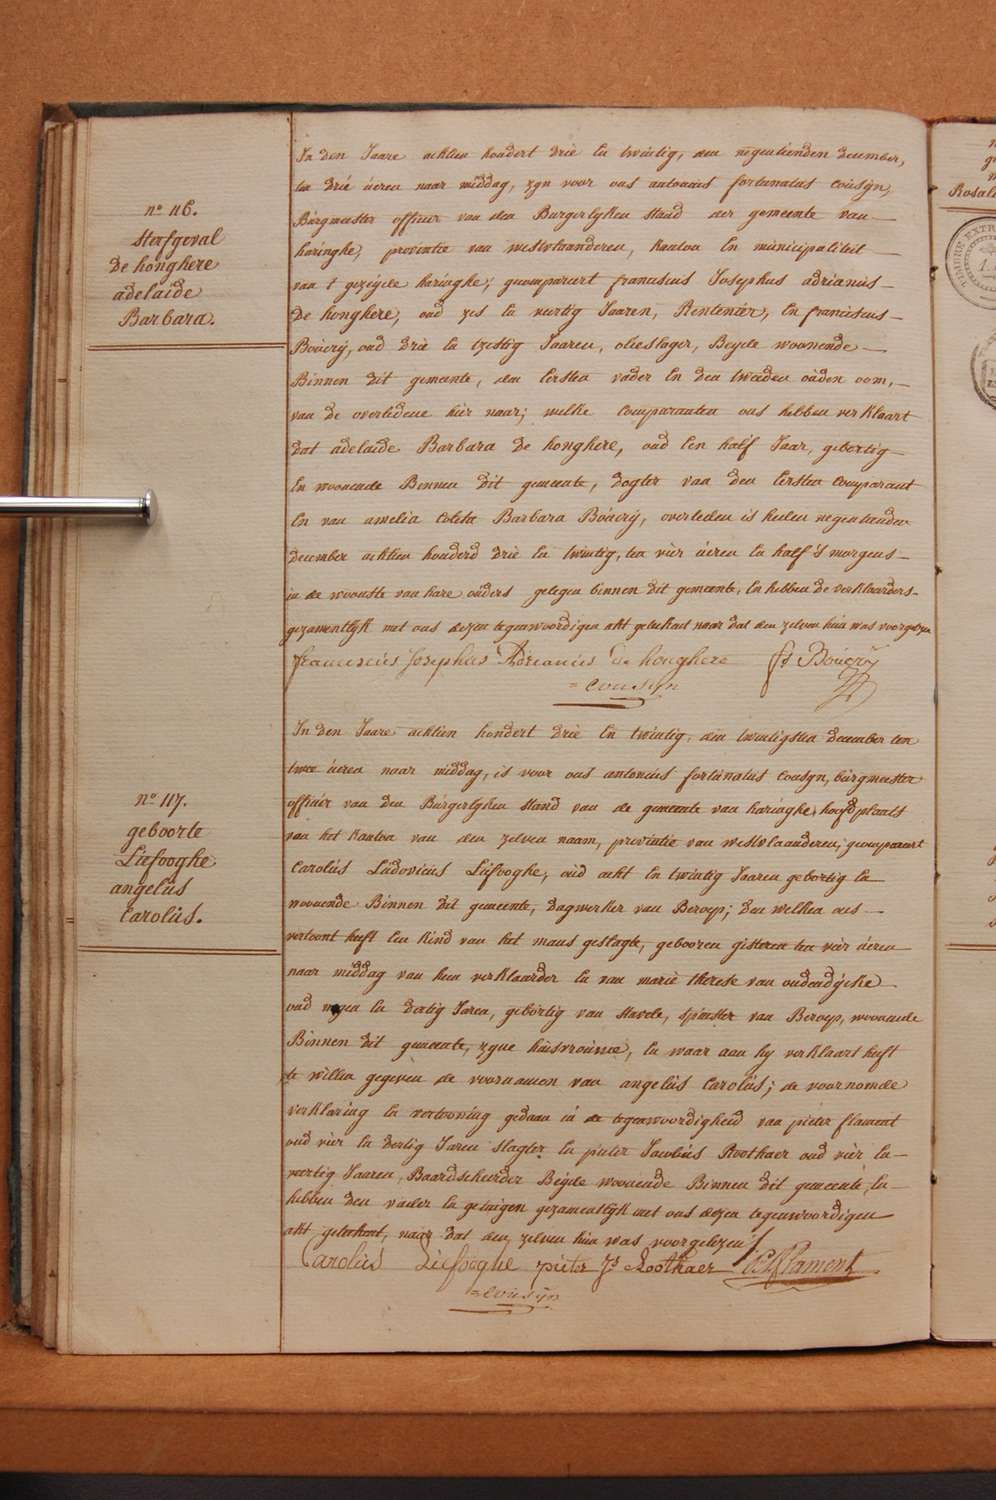 no 116.
Sterfgeval
De honghere
adelaide
Barbara.
In den Jaare achtien hondert drie En twintig, den negentienden december,
ten drie üeren naar middag, zyn voor ons antonius fortunatus Cousyn,
Bürgmeester officier van den Burgerlyken stand der gemeente van
haringhe, provintie van westvlaanderen, kanton En municipaliteit
van 't gezeyde haringhe; gecompareert franciscus Josephus adrianus
De honghere, oud zes En veertig Jaaren, Rentenier, En franciscus
Boùcrÿ, oud drie En tzestig Jaaren, olieslager, Beyde woonende
Binnen dit gemeente, den Eersten vader En den tweeden oùden oom,
van de overledene hier naar; welke comparanten ons hebben verklaart
dat adelaide Barbara De honghere, oud Een half Jaar, gebortig
En woonende Binnen dit gemeente, dogter van den Eersten Comparant
En van amelia Coleta Barbara Boùcrÿ, overleden is heden negentienden
december achtien honderd drie En twintig, ten vier üeren En half 's morgens
in de woonste van hare oùders gelegen binnen dit gemeente, En hebben de verklaarders
gezamentlÿk met ons dezen tegenwoordigen akt geteekent naar dat den zelven hun was voorgelezen
franciscus Josephus Adrianus De honghere fs Boùcrÿ
=Cousÿn
no 117.
geboorte
Liefooghe
angelüs
Carolüs.
In den Jaare achtien hondert drie En twintig, den twintigsten december ten
twee üeren naar middag, is voor ons antonius fortunatus Cousyn, bürgmeester
officier van den Bürgerlyken stand van de gemeente van haringhe, hoofdplaats
van het Kanton van den zelven naam, provintie van westvlaanderen; gecompareert
Carolus Ludovicus Liefooghe, oud acht En twintig Jaaren gebortig En
woonende Binnen dit gemeente, Dagwerker van Beroep; den welken ons
vertoont heeft Een kind van het mans geslagte, gebooren gisteren ten vier üeren
naar middag van hem verklaarder En van marie therese van oudendÿcke
oud negen En dertig Jaren, gebortig van Stavele, spinster van Beroep, woonende
Binnen dit gemeente, zyne hüisvrouwe, En waar aan hy verklaart heeft
te willen gegeven de voornamen van angelüs Carolüs; de voornomde
verklaring En vertooning gedaan in de tegenwoordigheid van pieter flament
oud vier En dertig Jaren slagter En pieter Jacobüs Roothaer oud vier En
veertig Jaaren, Baardscheirder Beÿde woonende Binnen dit gemeente, En
hebben den vader En getuigen gezamentlÿk met ons dezen tegenwoordigen
akt geteekent, naar dat den zelven hun was voorgelezen
Carolus Liefooghe pieter Js Roothaer P. fflament
=Cousÿn
TIMBRE EXTR
Rosali